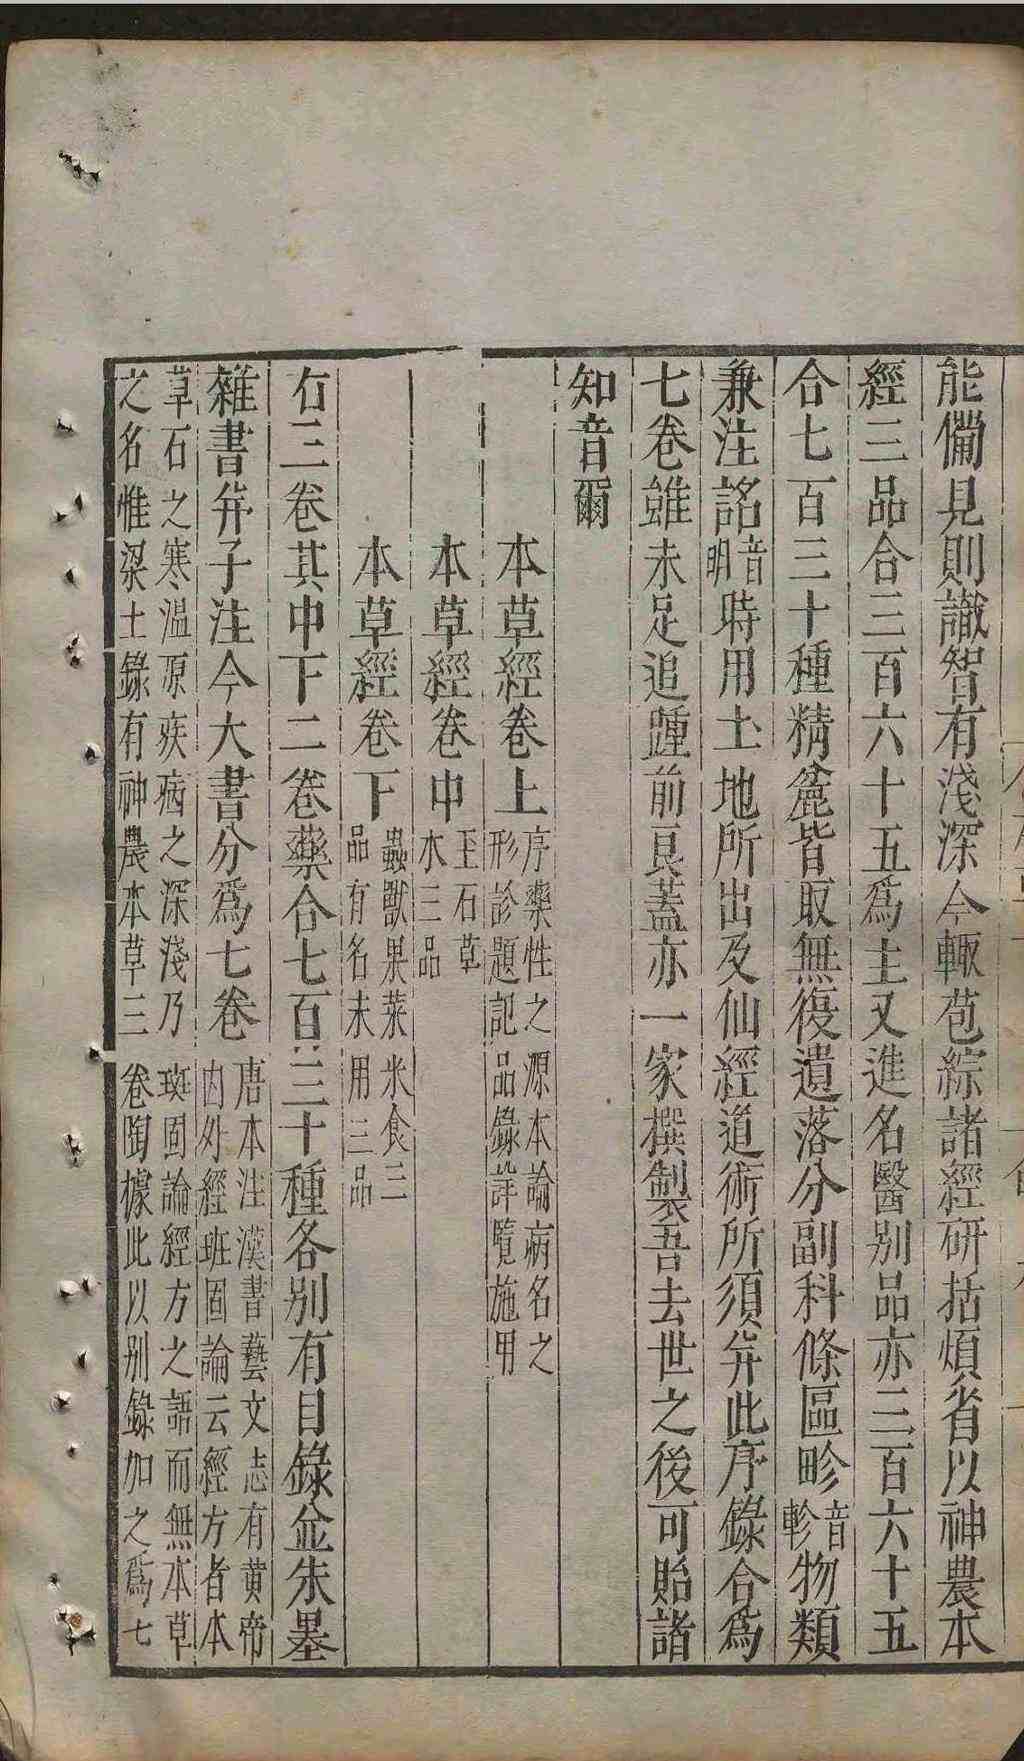 能備見則識智有淺深今輙苞綜諸經研括煩省以神農本
經三品合三百六十五爲主又進名醫别品亦三百六十五
合七百三十種精麄皆取無復遺落分副科條區畛音軫物類
兼注詺音明時用土地所出及仙經道術所須并此序錄合爲
七卷雖未足追踵前良蓋亦一家撰製吾去世之後可貽諸
知音爾
本草經卷上序藥性之源本論病名之
形診題記品錄詳覽施用
本草經卷中至石草
木三品
本草經卷下蟲獸果菜米食三
品有名未用三品
右三卷其中下二卷藥合七百三十種各别有目錄並朱墨
雜書并子注今大書分爲七卷唐本注漢書藝文志有黄帝
内外經班固論云經方者本
草石之寒温源疾病之深淺乃班固論經方之語而無本草
之名惟梁七錄有神農本草三卷陶據此以别錄加之爲七